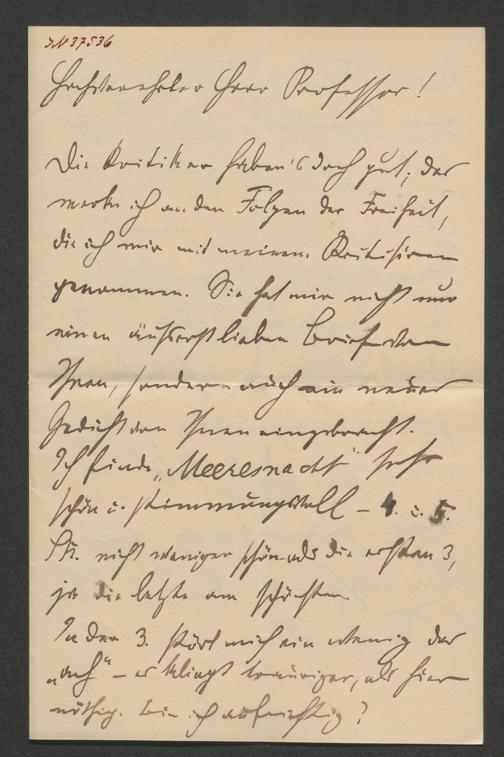 JN 37536
Hochverehrter Herr Professor!
Die Kritiker haben's doch gut; das
merke ich an den Folgen der Freiheit,
die ich mir mit meinem Kritisiren
genommen. Sie hat mir nicht nur
einen äußerst lieben Brief von
Ihnen, sondern auch ein neues
Gedicht von Ihnen eingebracht.
Ich finde „Meeresnacht" sehr
schön u. stimmungsvoll – 4. u. 5.
Str. nicht weniger schön als die ersten 3,
ja die letzte am schönsten.
In der 3. stört mich ein wenig das
„ach" – es klingt trauriger, als hier
nöthig. Bin ich aufrichtig?